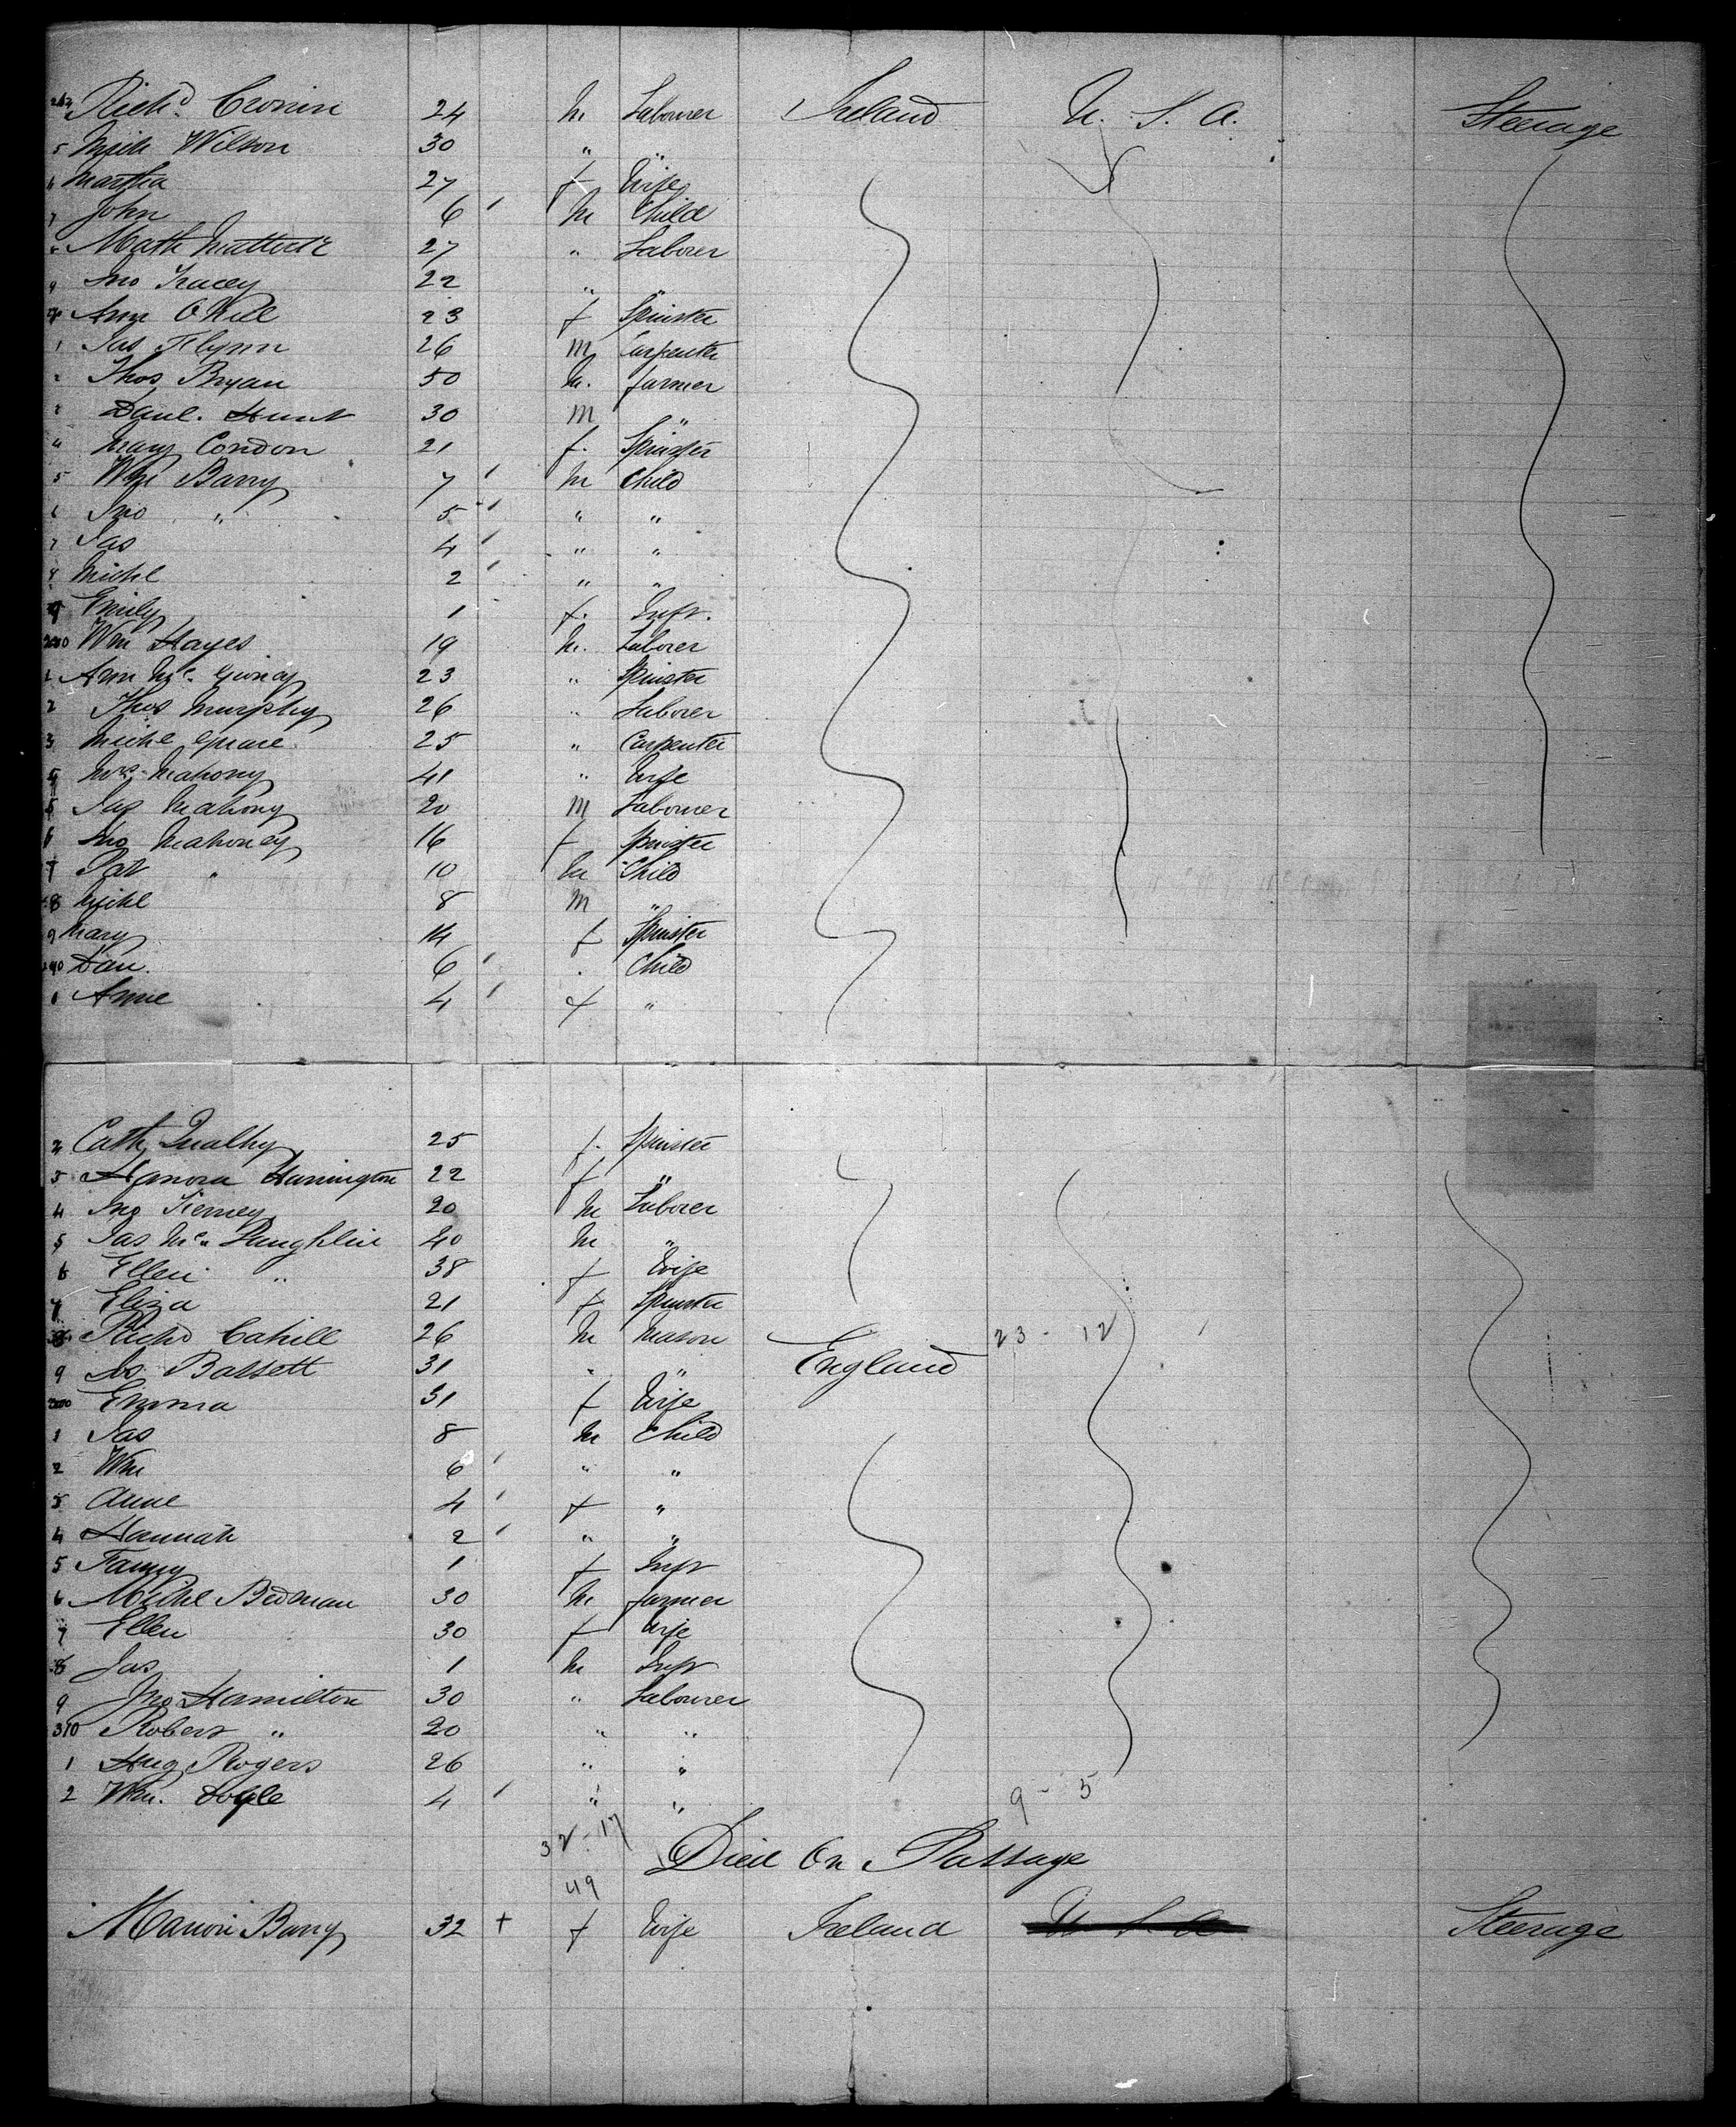 Richd. Cronin 24 M Labourer Ireland U. S. A. Steerage
5 Mich Wilson 30 " "
6 Martha 27 f Wife
7 John 6 ' M Child
Math 27 " Laborer
9 Jno Tracey 22 " "
Ann O'Neil 23 f Spinster
1 Jas Flynn 26 M Carpenter
2 Thos Bryan 50 M. farmer
Danl. Hunt 30 M "
4 Mary Condon 21 f. Spinster
5 Wm Barry 7 ' M Child
6 Jno " 5 ' " "
7 Jas 4 ' " "
Michl 2 ' " "
9 Emily 1 f. Inft.
Wm Hayes 19 M. Laborer
1 Ann Mc. 23 " Spinster
2 Thos Murphy 26 " Laborer
3 Michl Grace 25 " Carpenter
Mrs. Mahony 41 " Wife
5 Jas Mahony 20 M Labourer
6 Jno Mahoney 16 f Spinster
7 Pat " 10 M Child
8 Michl 8 M "
9 Mary 14 f Spinster
290 Dan. 6 ' . Child
1 Annie 4 ' f "
2 Cath 25 f. Spinster
3 Hanora Harrington 22 f "
4 Jno Tierney 20 M Laborer
5 Jas Mc. Laughlin 40 M "
6 Ellen " 38 f Wife
7 Eliza 21 f Spinster
8 Richd Cahill 26 M Mason 23 - 12
9 Js Bassett 31 " " England
300 Emma 31 f Wife
1 Jas 8 M Child
2 Wm 6 ' " "
3 Anne 4 ' f "
4 Hannah 2 ' " "
5 Fanny 1 f Inft
6 Michl Bedman 30 M farmer
7 Ellen 30 f Wife
8 Jas 1 M Inft
9 Jno Hamilton 30 " Labourer
310 Robert " 20 " "
1 Hug Rogers 26 " "
2 Wm. Doyle 4 ' " " 9 - 5
32 - 17
Died On Passage
49
Manori Barry 32 + f Wife Ireland U S A Steerage